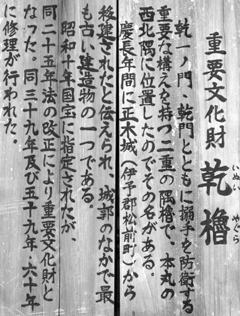 重要文化財 乾櫓
いぬい やぐら
乾一ノ門、乾門とともに搦手を防衛する
重要な構えを持つ二重の隅櫓で、本丸の
西北隅に位置したのでその名がある。
慶長年間に正木城(伊予郡松前町)から
移建されたと伝えられ、城郭のなかで最
も古い建造物の一つである。
昭和十年国宝に指定されたが、
同二十五年法の改正により重要文化財と
なった。同三十九年及び五十九年・六十年
に修理が行われた。